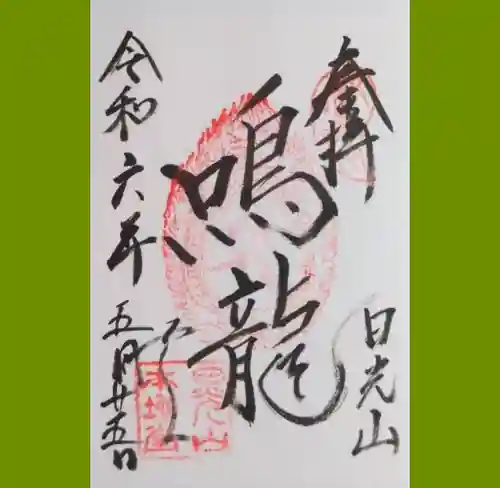 奉拝
日光山
鳴龍
令和六年
五月廿五日